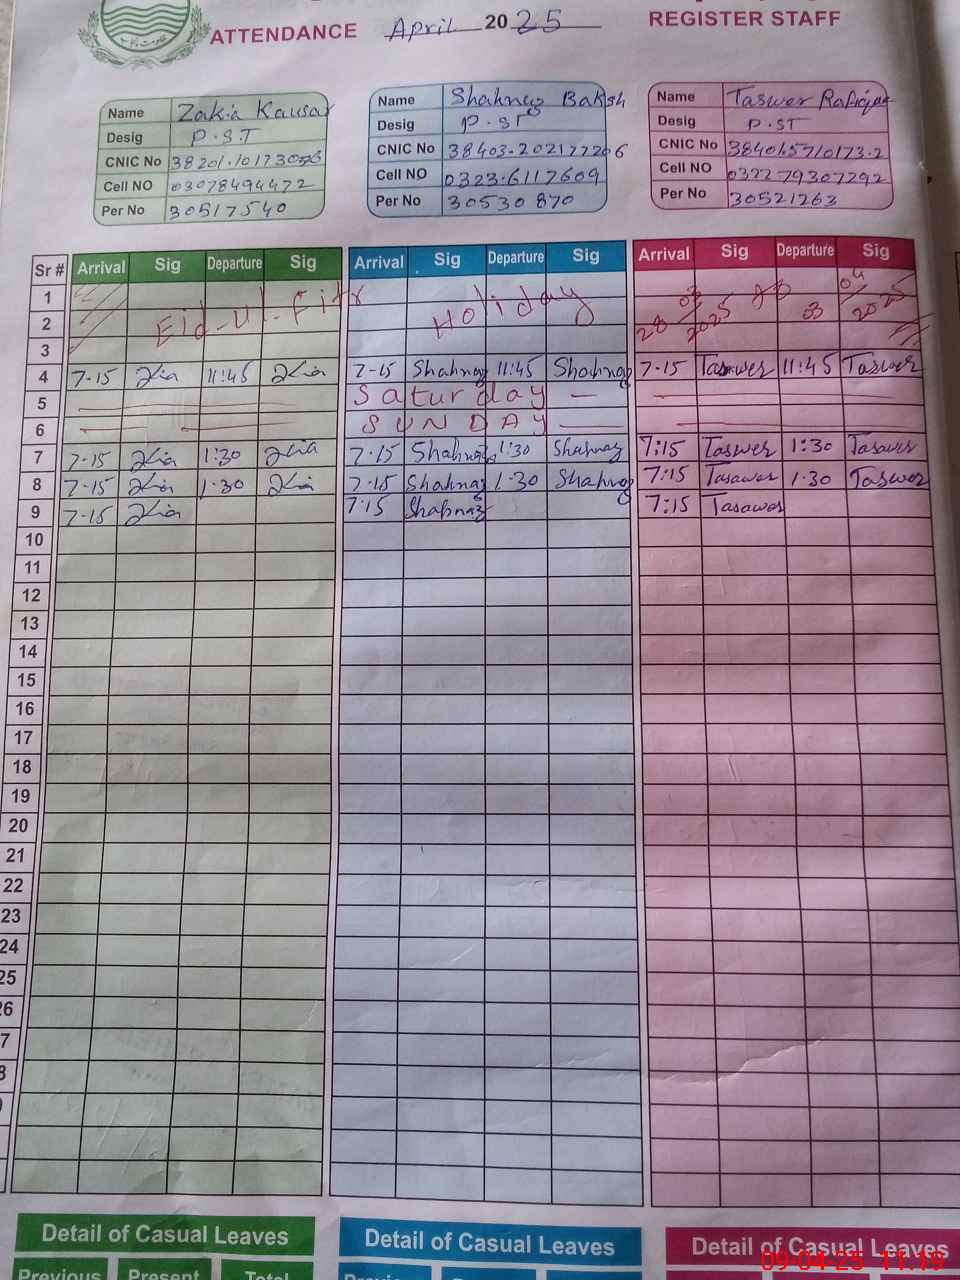 ATTENDANCE April 2025 REGISTER STAFF
Name Zakia Kausar
Desig P.S.T
CNIC No
Cell NO 03078494472
Per No 30517540
Name Shahnaz Baksh
Desig P.ST
CNIC No 38403-202177206
Cell NO 0323.6117609
Per No 30530870
Name Taswer Rafique
Desig P.ST
CNIC No 384045710173-2
Cell NO 032279307292
Per No 30521263
Sr # Arrival Sig Departure Sig Arrival Sig Departure Sig Arrival Sig Departure Sig
1
2 Eid-ul-Fitr Holiday 28 03 2025 03 04 2025
3
4 7-15 Zkia 11:45 Zkia 7-15 Shahnaz 11:45 Shahnaz 7-15 Taswer 11:45 Taswer
5 Saturday —
6 SUNDAY —
7 7-15 Zkia 1:30 Zkia 7-15 Shahnaz 1:30 Shahnaz 7:15 Taswer 1:30 Tasawer
8 7-15 Zkia 1.30 Zkia 7-15 Shahnaz 1.30 Shahnaz 7:15 Tasawer 1.30 Taswer
9 7-15 Zkia 7:15 Shahnaz 7:15 Tasawer
10
11
12
13
14
15
16
17
18
19
20
21
22
23
24
25
26
7
8
Detail of Casual Leaves Detail of Casual Leaves Detail of Casual Leaves
Previous Present Total
09-04-25 11:19